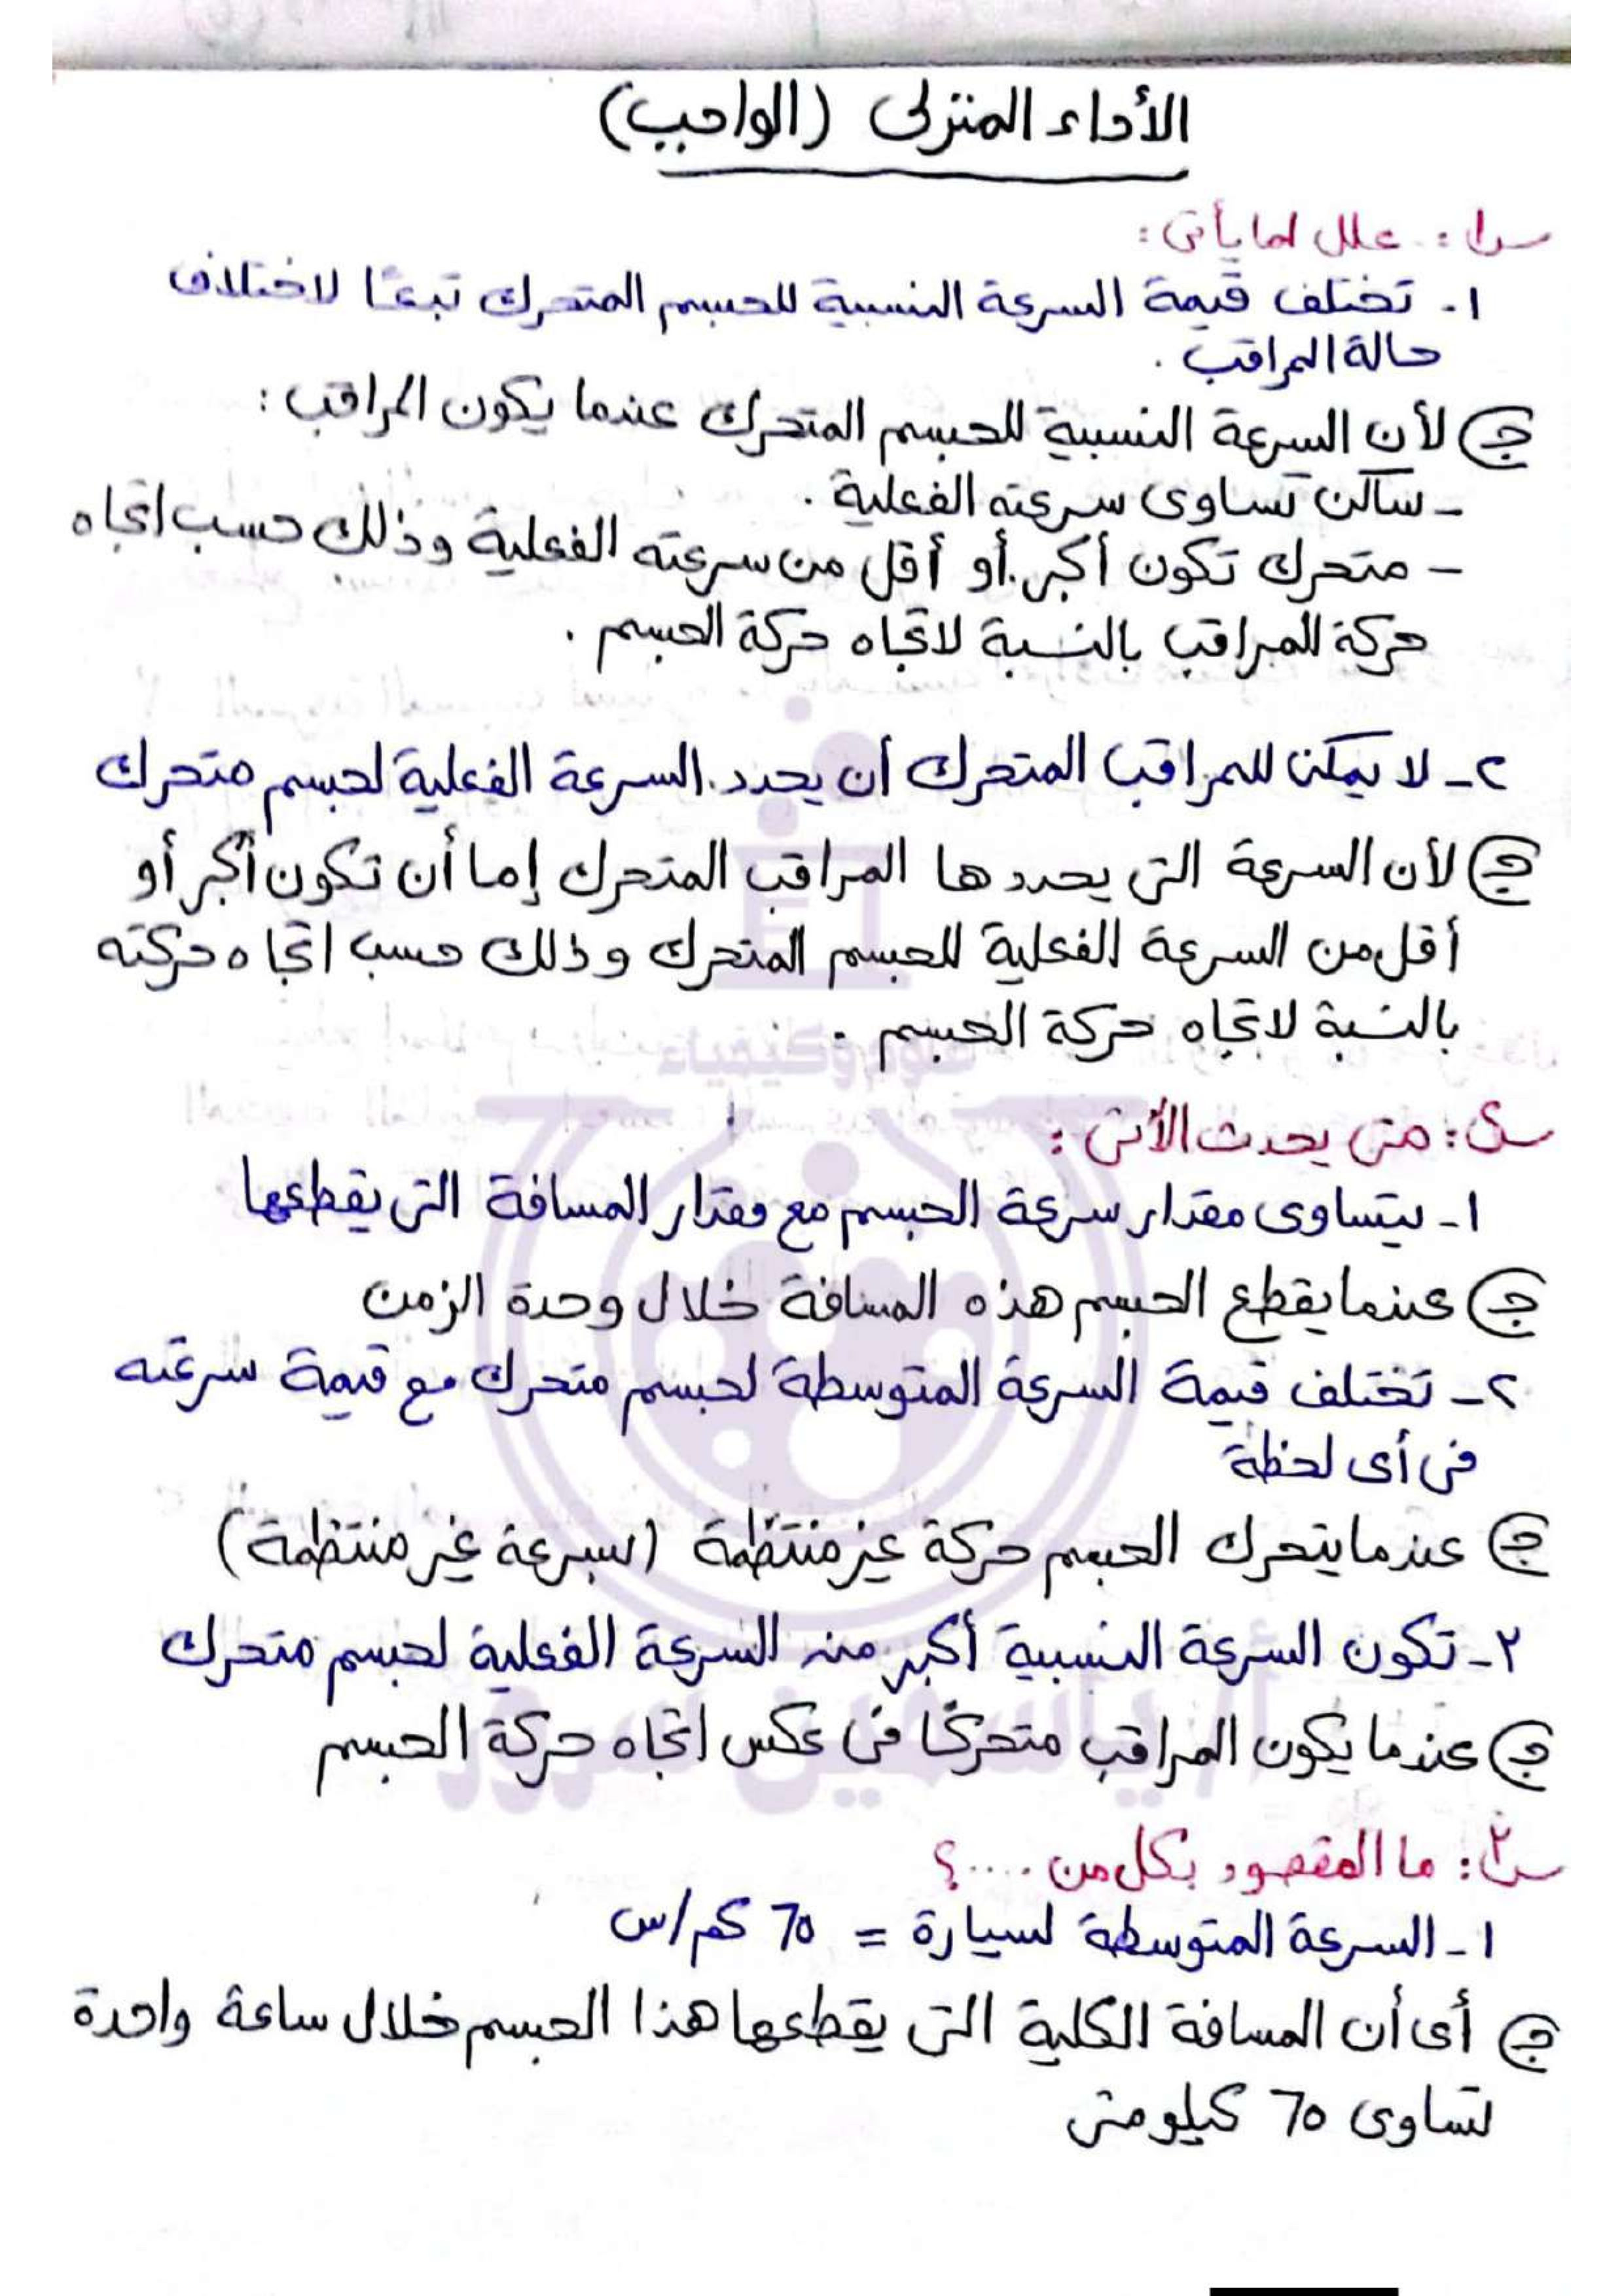 الأداء المنزلى (الواجب)
س١: علل لما يأتى:
١- تختلف قيمة السرعة النسبية للجسم المتحرك تبعًا لاختلاف
حالة المراقب .
ج لأن السرعة النسبية للجسم المتحرك عندما يكون المراقب :
- ساكن تساوى سرعته الفعلية .
- متحرك تكون أكبر أو أقل من سرعته الفعلية وذلك حسب اتجاه
حركة المراقب بالنسبة لاتجاه حركة الجسم .
٢- لا يمكن للمراقب المتحرك أن يحدد السرعة الفعلية لجسم متحرك
ج لأن السرعة التى يحددها المراقب المتحرك إما أن تكون أكبر أو
أقل من السرعة الفعلية للجسم المتحرك وذلك حسب اتجاه حركته
بالنسبة لاتجاه حركة الجسم .
علوم وكيمياء
س٢: متى يحدث الأتى :
١- يتساوى مقدار سرعة الجسم مع مقدار المسافة التى يقطعها
ج عندما يقطع الجسم هذه المسافة خلال وحدة الزمن
٢- تختلف قيمة السرعة المتوسطة لجسم متحرك مع قيمة سرعته
فى أى لحظة
ج عندما يتحرك الجسم حركة غير منتظمة (بسرعة غير منتظمة)
٣- تكون السرعة النسبية أكبر من السرعة الفعلية لجسم متحرك
أ/ ياسمين سرور
ج عندما يكون المراقب متحركًا فى عكس اتجاه حركة الجسم
س٣: ما المقصود بكل من ....؟
١- السرعة المتوسطة لسيارة = ٦٥ كم/س
ج أى أن المسافة الكلية التى يقطعها هذا الجسم خلال ساعة واحدة
تساوى ٦٥ كيلومتر